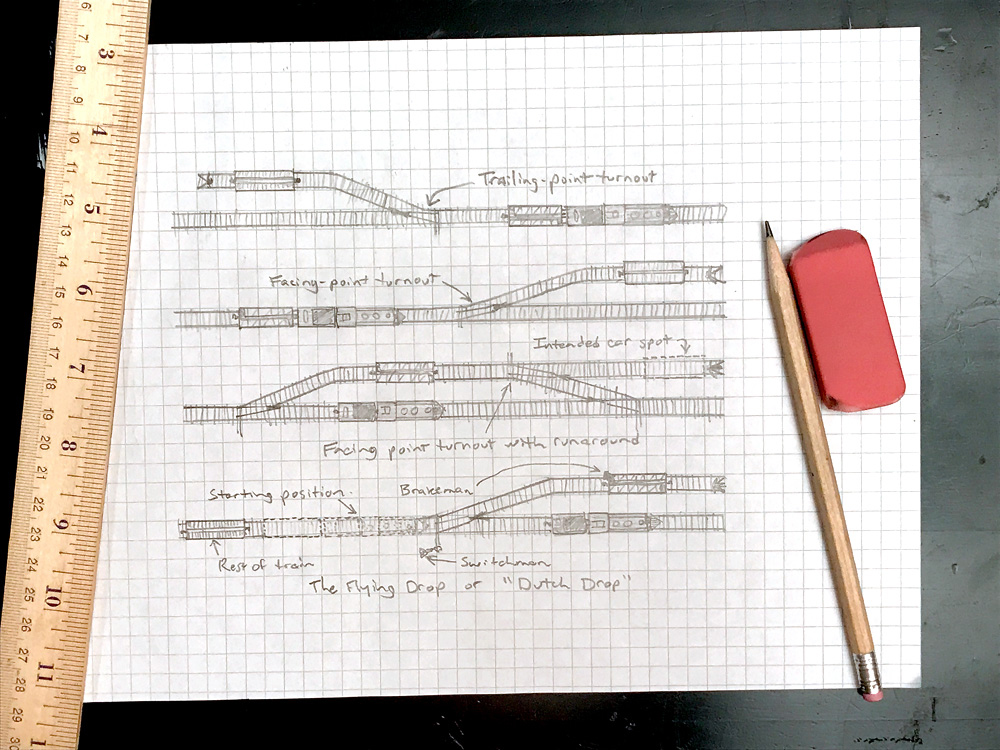 Trailing-point turnout
Facing-point turnout
Intended car spot
Facing point turnout with runaround
Starting position.
Brakeman
Rest of train
Switchman
The Flying Drop or "Dutch Drop"
3
4
5
6
7
8
9
10
11
1
6
7
8
9
10
11
12
13
14
15
16
17
18
19
20
21
22
23
24
25
26
27
28
29
30